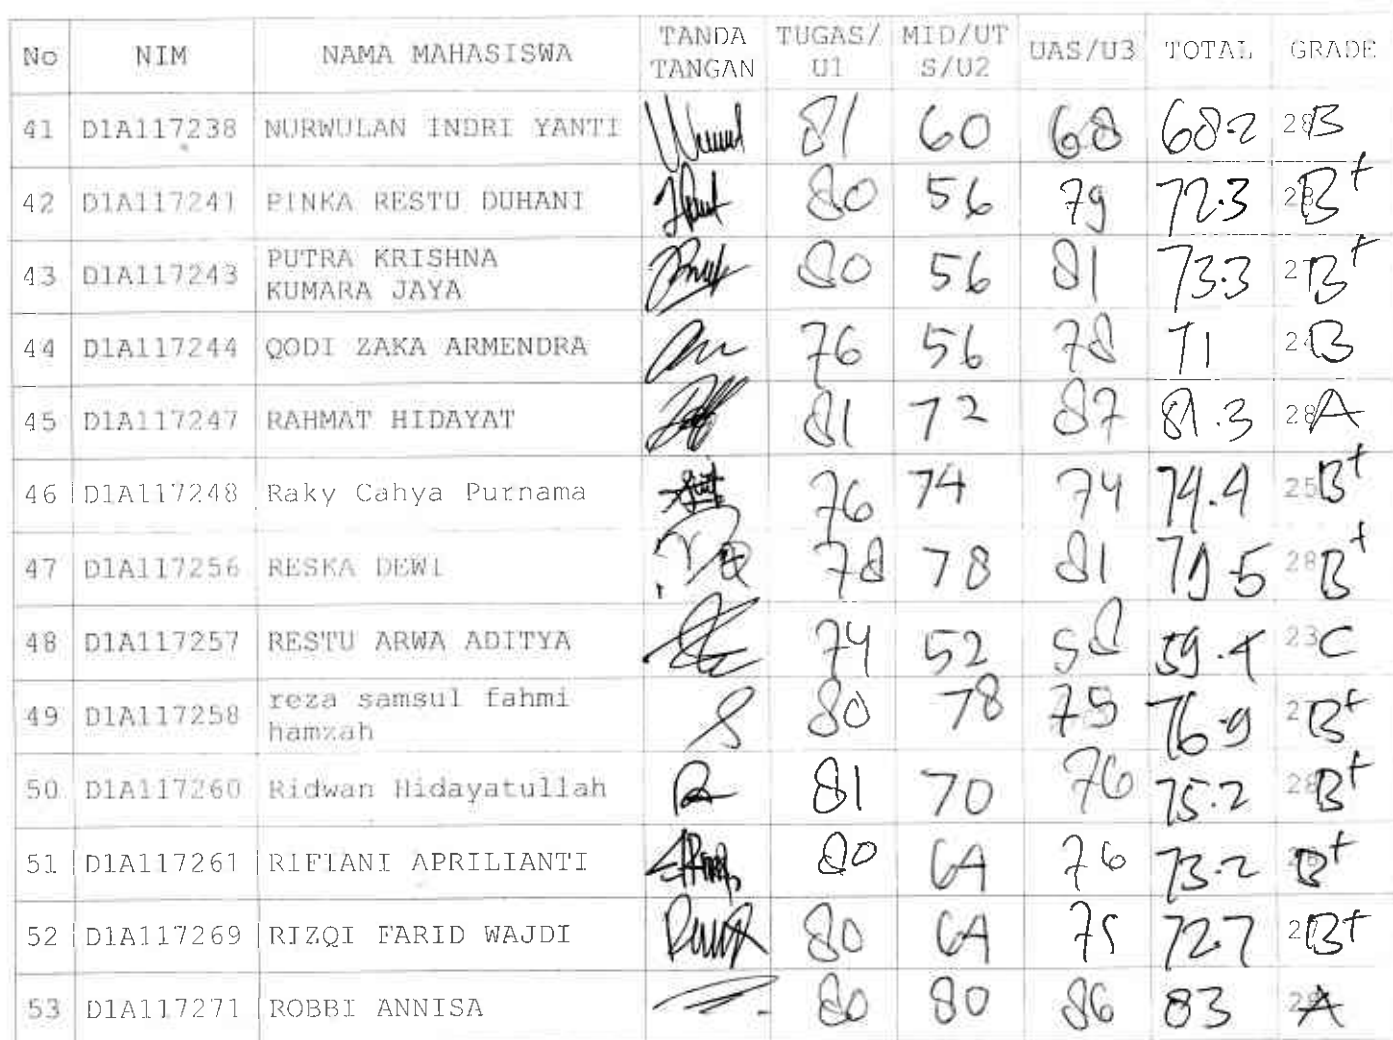 No NIM NAMA MAHASISWA TANDA TANGAN TUGAS/U1 MID/UTS/U2 UAS/U3 TOTAL GRADE
41 D1A117238 NURWULAN INDRI YANTI 81 60 68 68.2 28 B
42 D1A117241 PINKA RESTU DUHANI 80 56 79 72.3 28 B+
43 D1A117243 PUTRA KRISHNA
KUMARA JAYA 80 56 81 73.3 27 B+
44 D1A117244 QODI ZAKA ARMENDRA 76 56 78 71 24 B
45 D1A117247 RAHMAT HIDAYAT 81 72 87 81.3 28 A
46 D1A117248 Raky Cahya Purnama 76 74 74 74.4 25 B+
47 D1A117256 RESKA DEWI 78 78 81 79.5 28 B+
48 D1A117257 RESTU ARWA ADITYA 74 52 58 59.4 23 C
49 D1A117258 reza samsul fahmi
hamzah 80 78 75 76.9 2 B+
50 D1A117260 Ridwan Hidayatullah 81 70 76 75.2 28 B+
51 D1A117261 RIFIANI APRILIANTI 80 64 76 73.2 B+
52 D1A117269 RIZQI FARID WAJDI 80 64 75 72.7 2 B+
53 D1A117271 ROBBI ANNISA 80 80 86 83 28 A